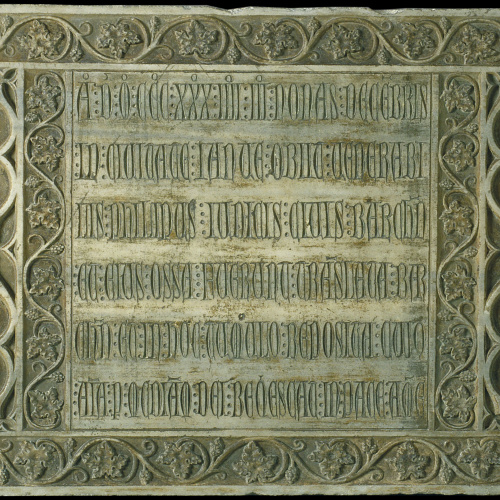 A : D : M : CCC : XXX : IIII : III : NONAS : DECEBRIS
IN : CIVITATE : IANUE : OBIIT : VENERABI
LIS : PHILIPUS : IUDICIS : CIVIS : BARCHN
CUIUS : OSSA : FUERUNT : TRASLATA : BAR
CHN : ET : IN : HOC : TUMULO : REPOSITA : CUIUS
AIA : P : DEI : REQESCAT : IN : PACE : AME